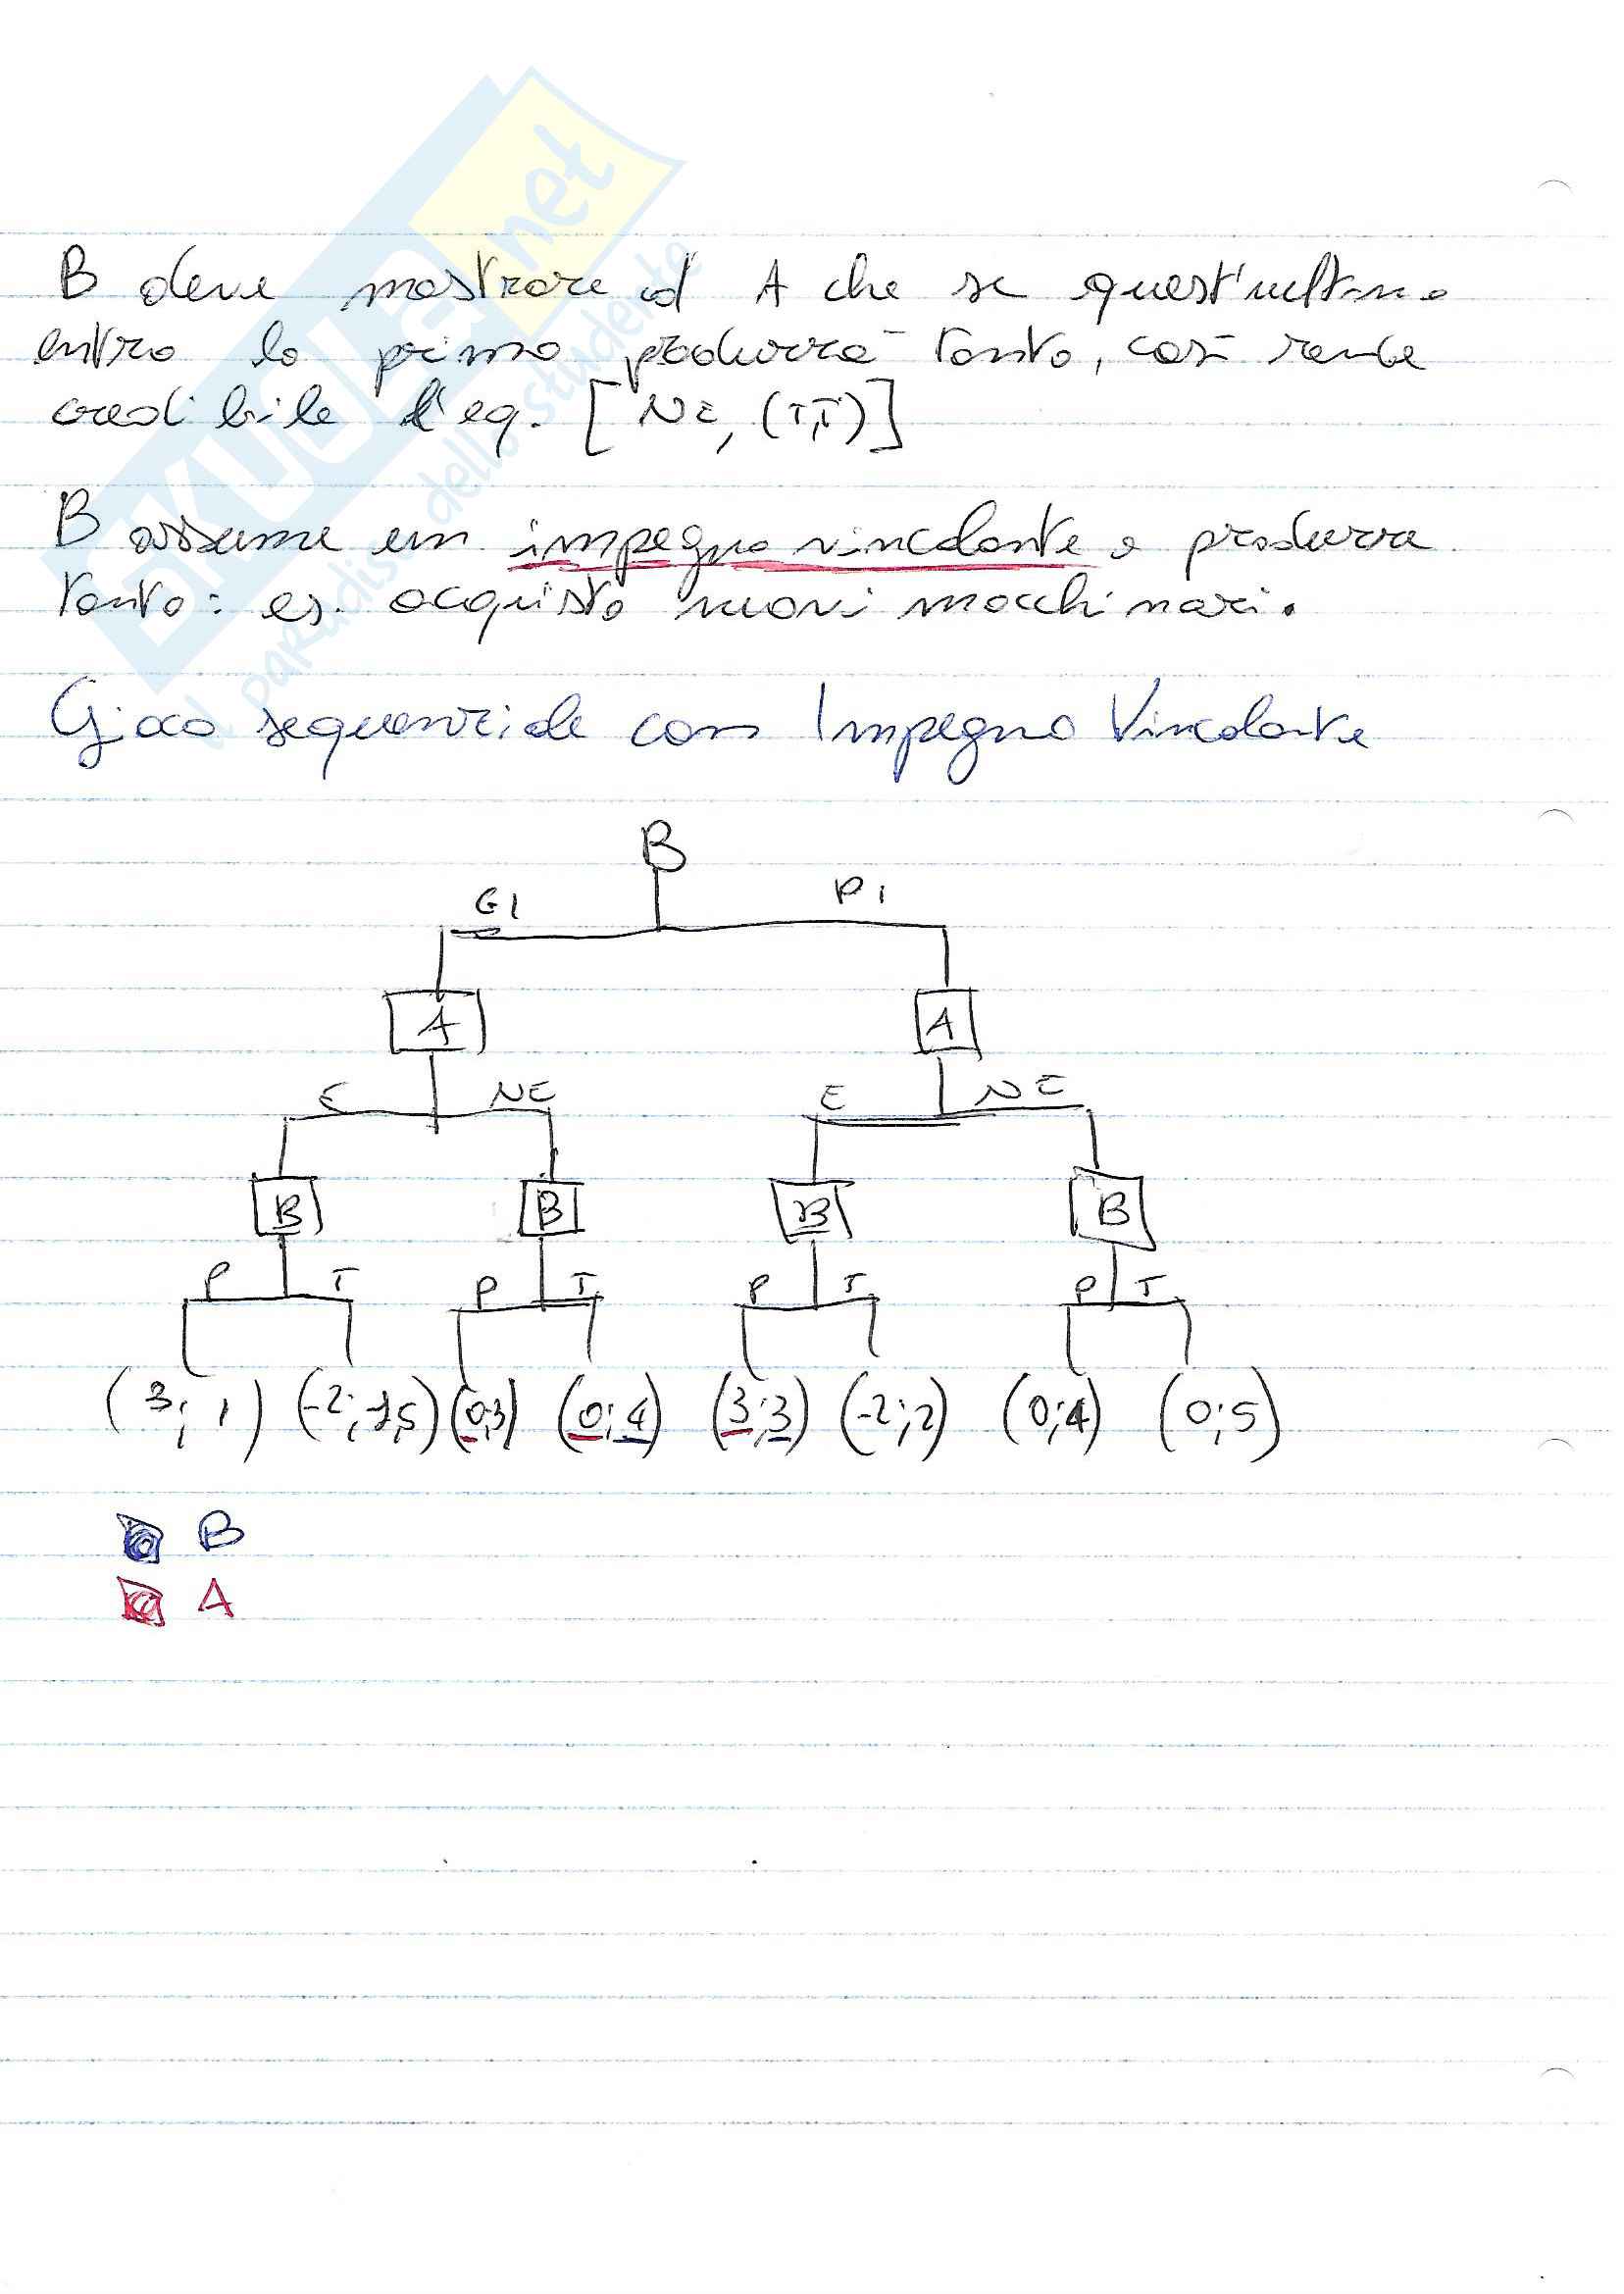 SKUOLA.net
il paradiso dello studente
B deve mostrare ad A che se quest'ultima
entra la prima produrrà tanto, così rende
credibile l'eq. [NE, (T,T)]
B assume un impegno vincolante a produrre
tanto: es. acquisto nuovi macchinari.
Gioco sequenziale con Impegno Vincolante
B
GI PI
A A
E NE E NE
B B B B
P T P T P T P T
(3; 1) (-2; 1,5) (0;3) (0;4) (3;3) (-2;2) (0;4) (0;5)
B
A